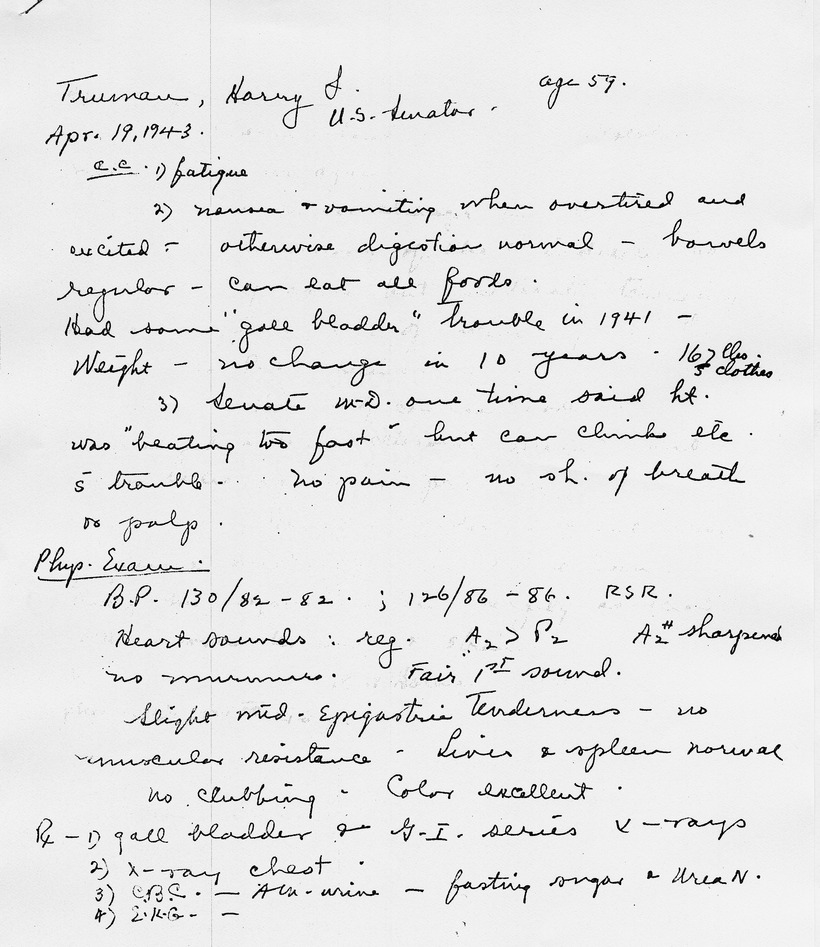 Truman, Harry S. age 59.
U.S. Senator.
Apr. 19, 1943.
C.C. 1) fatigue
2) nausea & vomiting when overtired and
excited - otherwise digestion normal - bowels
regular - can eat all foods.
Had some "gall bladder" trouble in 1941 -
Weight - no change in 10 years. 167 lbs.
s̄ clothes
3) Senate M.D. one time said ht.
was "beating too fast" but can climb etc.
s̄ trouble. No pain - no sh. of breath
or palp.
Phys. Exam.
B.P. 130/82-82. ; 126/86-86. RSR.
Heart sounds: reg. A2 > P2 A2# sharpened
no murmurs. Fair 1st sound.
Slight mid-Epigastric Tenderness - no
muscular resistance - Liver & spleen normal
no clubbing - Color excellent.
Rx - 1) gall bladder & G-I. series X-rays
2) X-ray chest.
3) C.B.C. - urine - fasting sugar & Urea N.
4) E.K.G. -